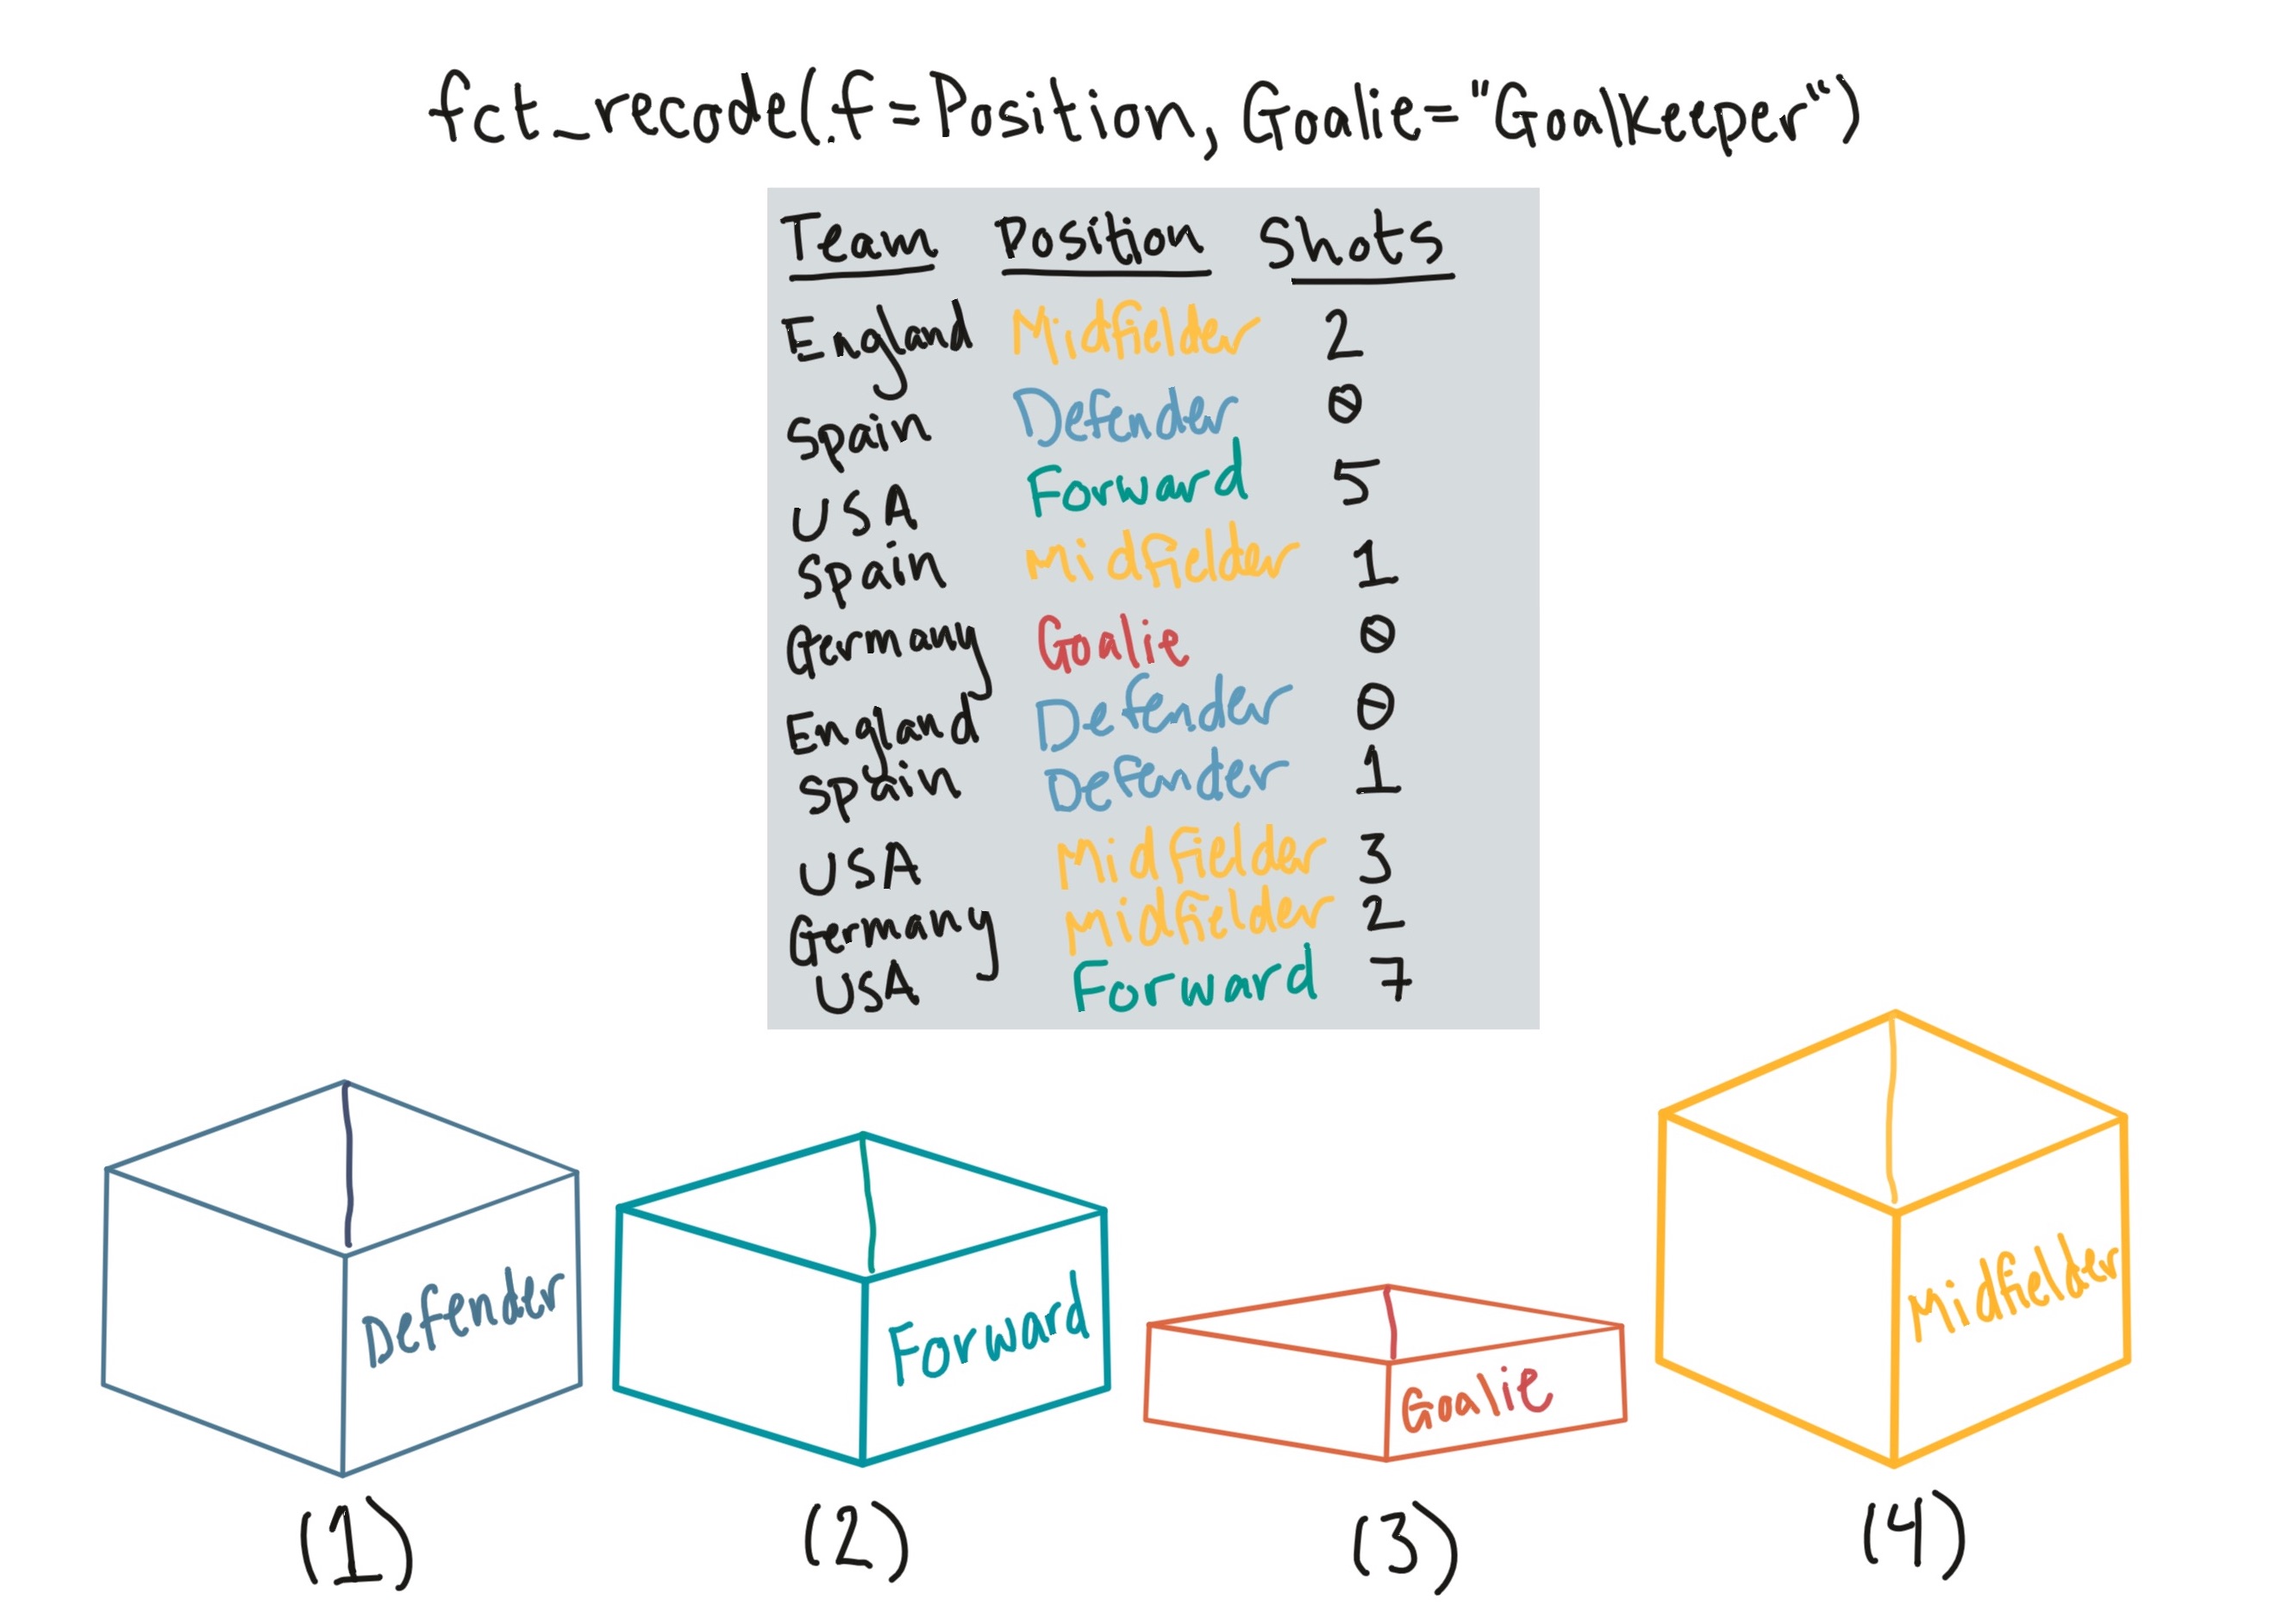 fct_recode(.f=Position, Goalie="Goalkeeper")
Team Position Shots
England Midfielder 2
Spain Defender 0
USA Forward 5
Spain Midfielder 1
Germany Goalie 0
England Defender 0
Spain Defender 1
USA Midfielder 3
Germany Midfielder 2
USA Forward 7
Defender
Forward
Goalie
Midfielder
(1) (2) (3) (4)